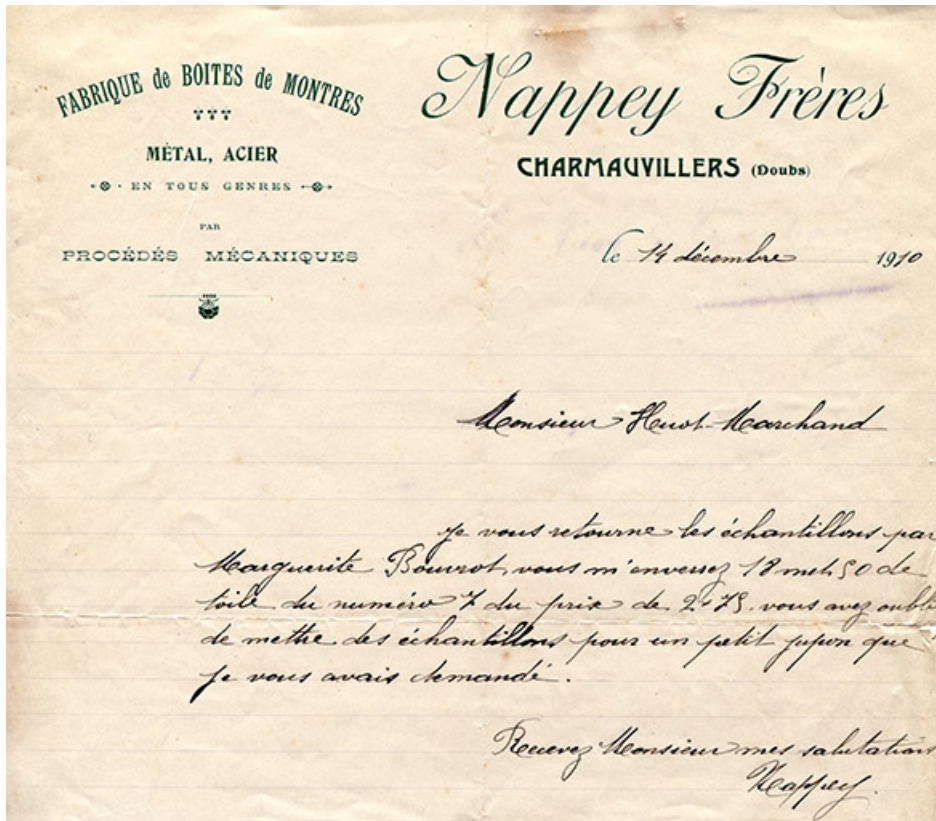 FABRIQUE de BOITES de MONTRES
MÉTAL, ACIER
EN TOUS GENRES
PAR
PROCÉDÉS MÉCANIQUES
Nappey Frères
CHARMAUVILLERS (Doubs)
le 14 décembre 1910
Monsieur Huot-Marchand
Je vous retourne les échantillons par
Marguerite Bouvrot, vous m'enverrez 18 met 50 de
toile du numéro 7 du prix de 2f75. vous avez oublié
de mettre des échantillons pour un petit jupon que
je vous avais demandé.
Recevez Monsieur mes salutations
Nappey.